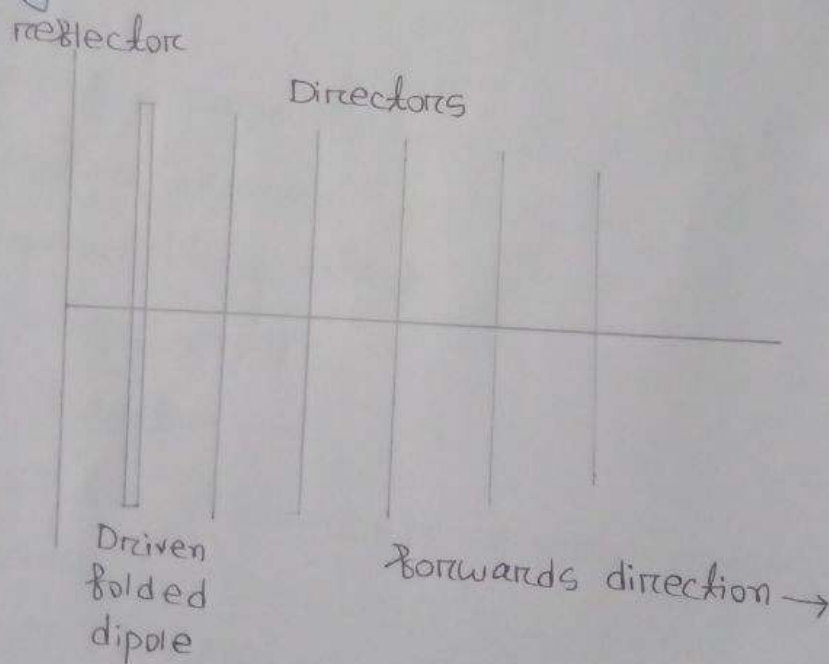 reflector
Directors
Driven
folded
dipole
forwards direction →